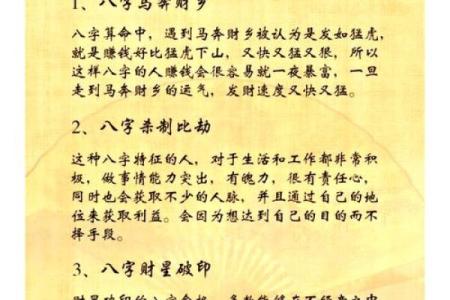 1、八字马奔财乡
八字算命中，遇到马奔财乡被认为是发如猛虎，
就是赚钱好比猛虎下山，又快又猛又狠，所以
这样八字的人赚钱会很容易就一夜暴富，一旦
走到马奔财乡的运气，发财速度又快又猛。
2、八字杀制比劫
这种八字特征的人，对于生活和工作都非常积
极，做事情能力突出，有魄力，很有责任心，
同时也会获取不少的人脉，并且通过自己的地
位来获取利益。会因为想达到自己的目的而不
择手段。
3、八字财星破印
财星破印的八字命格，多数能够在不经意之中